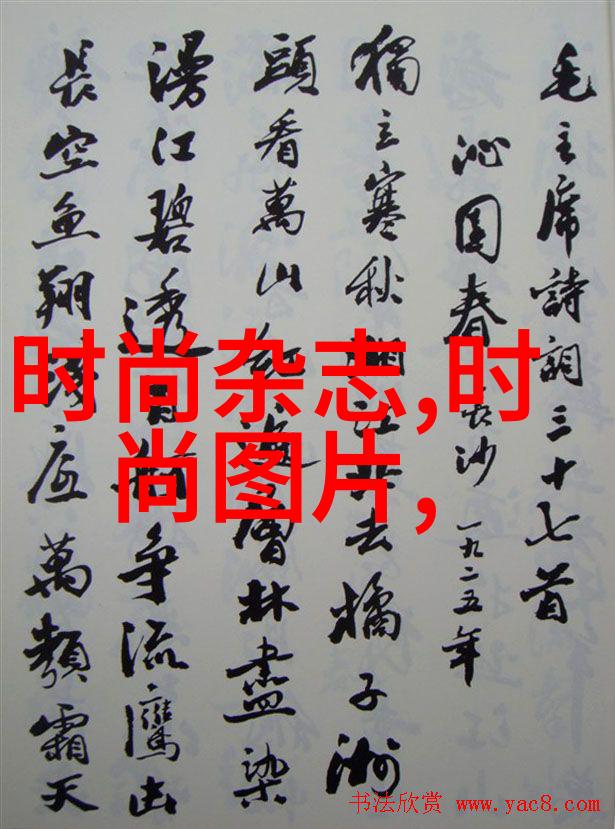 毛主席詩詞三十七首
沁園春 長沙 一九二五年
獨立寒秋湘江北去橘子洲
頭看萬山紅遍層林盡染
漫江碧透百舸争流鷹击
長空魚翔淺底萬類霜天
时尚杂志,时
尚图片,
书法欣赏 www.yac8.com